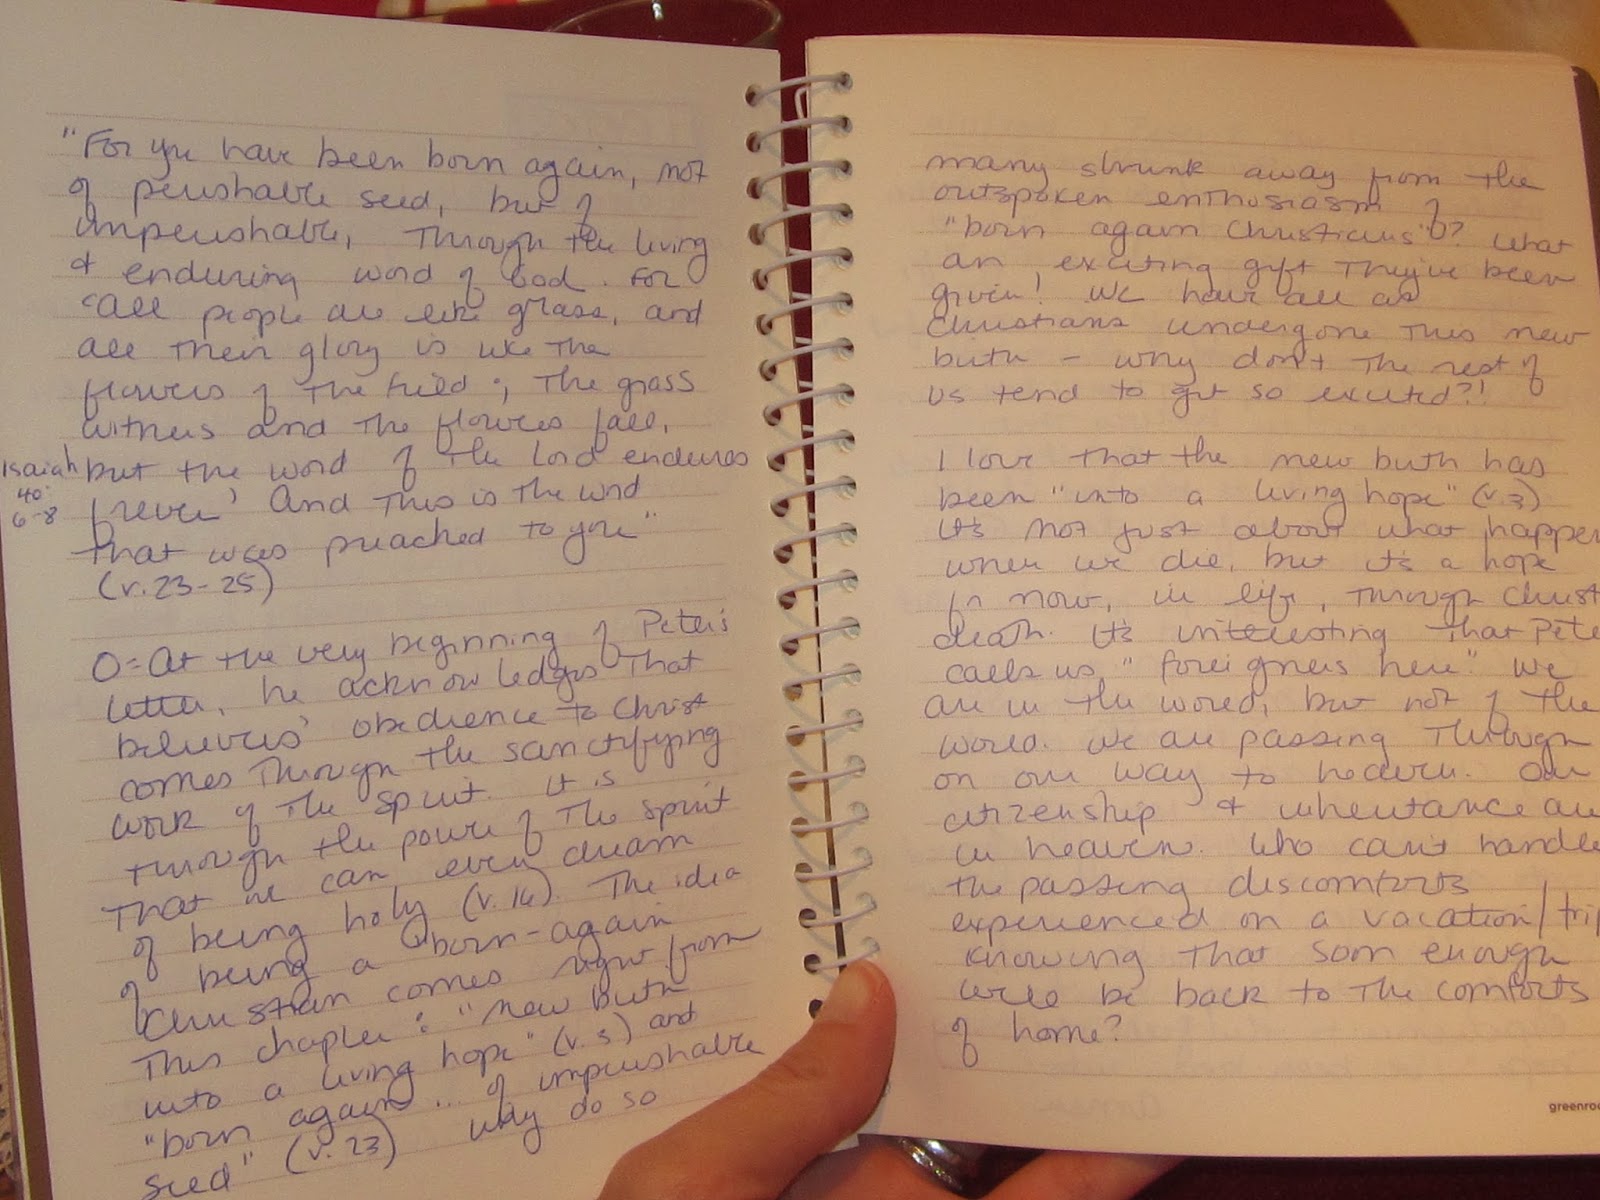 "For you have been born again, not
of perishable seed, but of
imperishable, through the living
& enduring word of God. For
'all people are like grass, and
all their glory is like the
flowers of the field; the grass
withers and the flowers fall,
Isaiah 40: 6-8
but the word of the Lord endures
forever' And this is the word
that was preached to you"
(v. 23-25)
O= At the very beginning of Peter's
letter, he acknowledges that
believers' obedience to Christ
comes through the sanctifying
work of the spirit. It is
through the power of the spirit
that we can even dream
of being holy (v. 16). The idea
of being a "born-again
Christian comes right from
this chapter: "new birth
into a living hope" (v. 3) and
"born again ... of imperishable
seed" (v. 23) why do so
many shrunk away from the
outspoken enthusiasm of
"born again Christians"? What
an exciting gift they've been
given! We have all as
Christians undergone this new
birth - why don't the rest of
us tend to get so excited?!
I love that the new birth has
been "into a living hope" (v. 3)
It's not just about what happen
when we die, but it's a hope
for now, in life, through Christ
death. It's interesting that Pete
calls us "foreigners here." We
are in the world, but not of the
world. We are passing through
on our way to heaven. Our
citizenship & inheritance are
in heaven. Who can't handle
the passing discomforts
experienced on a vacation/trip
knowing that soon enough
we'll be back to the comforts
of home?
greenroo